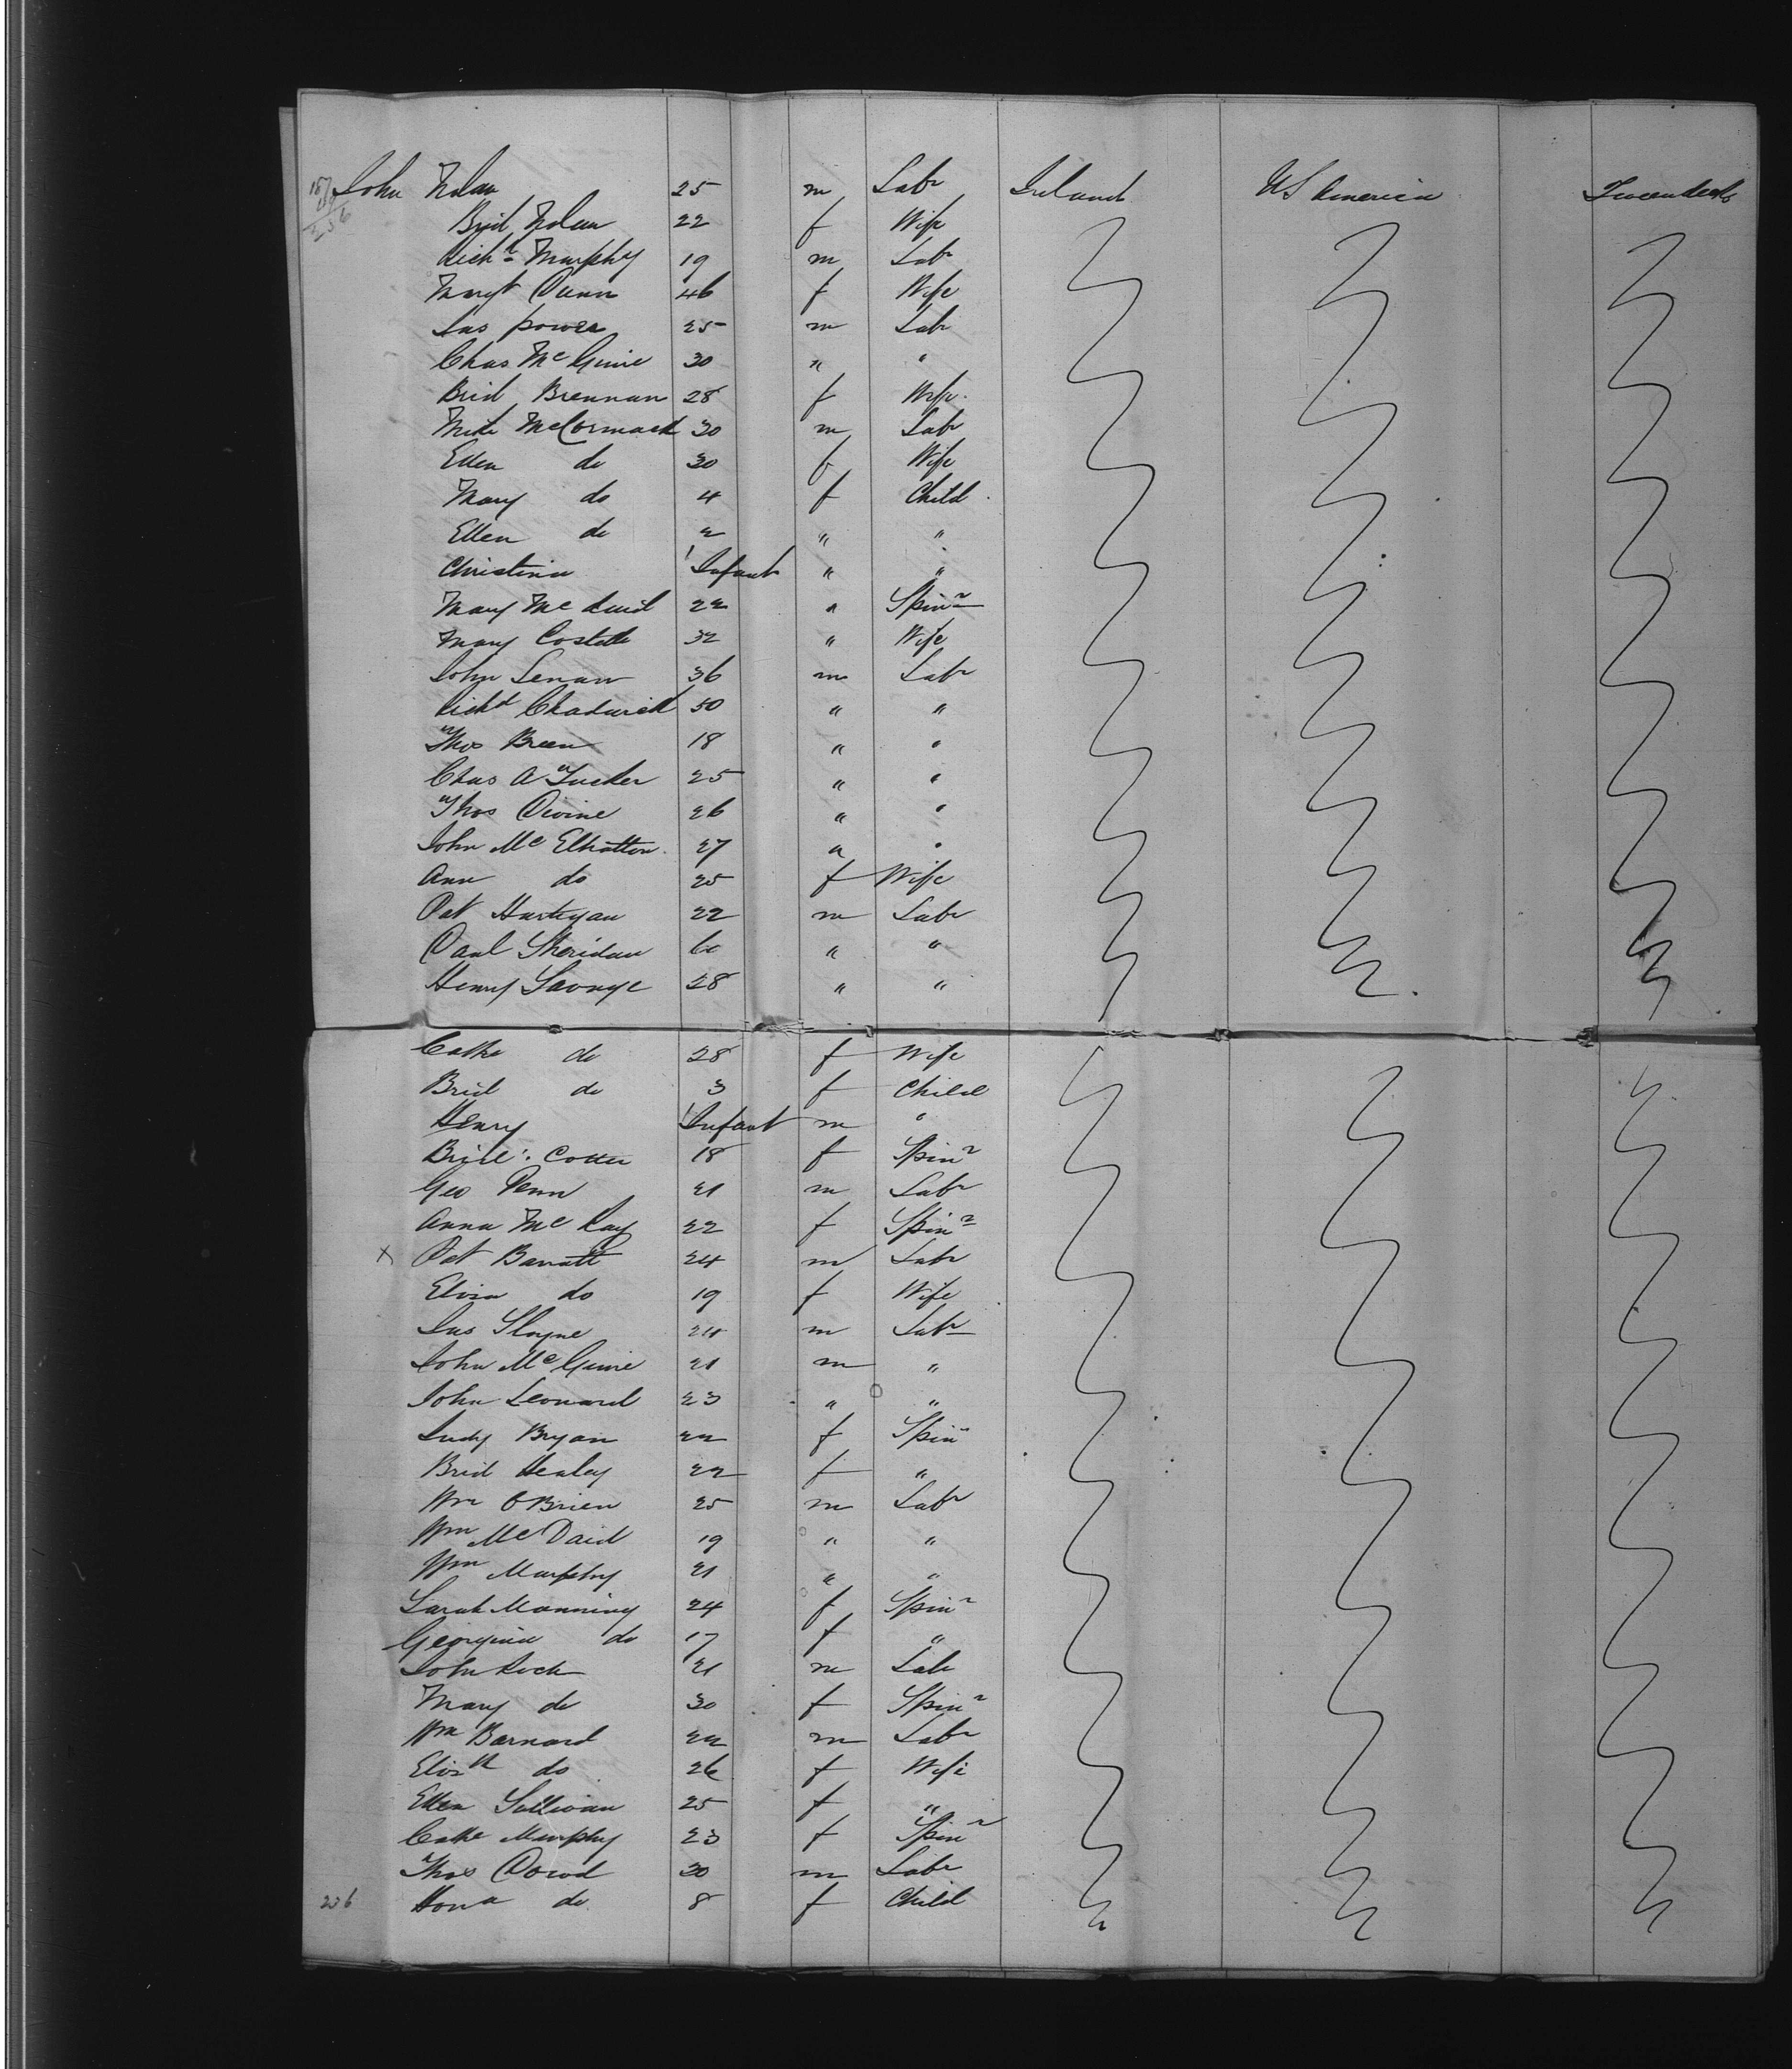 187 John Nolan 25 m Labr Ireland US America Tweendecks
236 Brid Nolan 22 f Wife
Richd Murphy 19 m Labr
Margt Dunn 46 f Wife
Jas power 25 m Labr
Chas McGuire 30 " "
Brid Brennan 28 f Wife
McCormack 30 m Labr
Ellen do 30 f Wife
Mary do 4 f Child
Ellen do 2 " "
Christina Infant " "
Mary McDaid 22 " Spinr
Mary Costello 32 " Wife
John Lenan 36 m Labr
Richd Chadwick 50 " "
Thos Breen 18 " "
Chas A Tucker 25 " "
Thos Divine 26 " "
John McElhatton 27 " "
Ann do 25 f Wife
Pat Hartigan 22 m Labr
Paul Sheridan 60 " "
Henry Savage 28 " "
Cathe do 28 f Wife
Brid do 3 f Child
Henry Infant m "
Brid. Cotter 18 f Spinr
Geo Penn 21 m Labr
Anna McKay 22 f Spinr
x Pat Barratt 24 m Labr
Eliza do 19 f Wife
Jas Slayne m Labr
John McGuire 21 m "
John Leonard 23 " "
Judy Bryan 22 f Spinr
Brid Healey 22 f "
Wm OBrien 25 m Labr
Wm McDaid 19 " "
Wm Murphy 21 " "
Sarah Manning 24 f Spinr
Georgina do 17 f "
John Rock 21 m Labr
Mary do 30 f Spinr
Wm Barnard 22 m Labr
Elizth do 26 f Wife
Ellen Sullivan 25 f "
Cathe Murphy 23 f Spinr
Thos Dowd 30 m Labr
236 Hona do 8 f Child